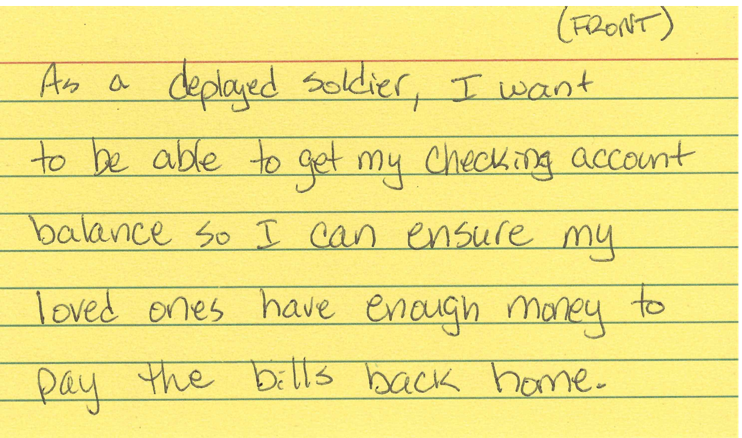 (FRONT)
As a deployed soldier, I want
to be able to get my checking account
balance so I can ensure my
loved ones have enough money to
pay the bills back home.